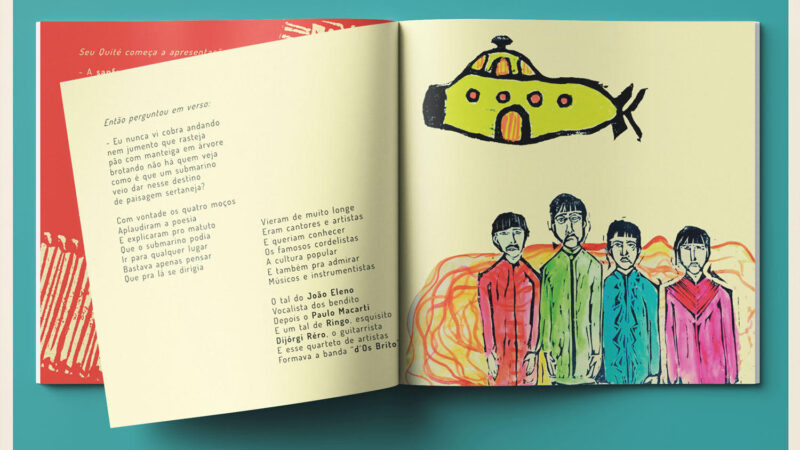 Seu Quité começa a apresentação
- A
Então perguntou em verso:
- Eu nunca vi cobra andando
nem jumento que rasteja
pão com manteiga em árvore
brotando não há quem veja
como é que um submarino
veio dar nesse destino
de paisagem sertaneja?
Com vontade os quatro moços
Aplaudiram a poesia
E explicaram pro matuto
Que o submarino podia
Ir para qualquer lugar
Bastava apenas pensar
Que pra lá se dirigia
Vieram de muito longe
Eram cantores e artistas
E queriam conhecer
Os famosos cordelistas
A cultura popular
E também pra admirar
Músicos e instrumentistas
O tal do João Eleno
Vocalista dos bendito
Depois o Paulo Macarti
E um tal de Ringo, esquisito
Dijórgi Réro, o guitarrista
E esse quarteto de artistas
Formava a banda "d'Os Brito"